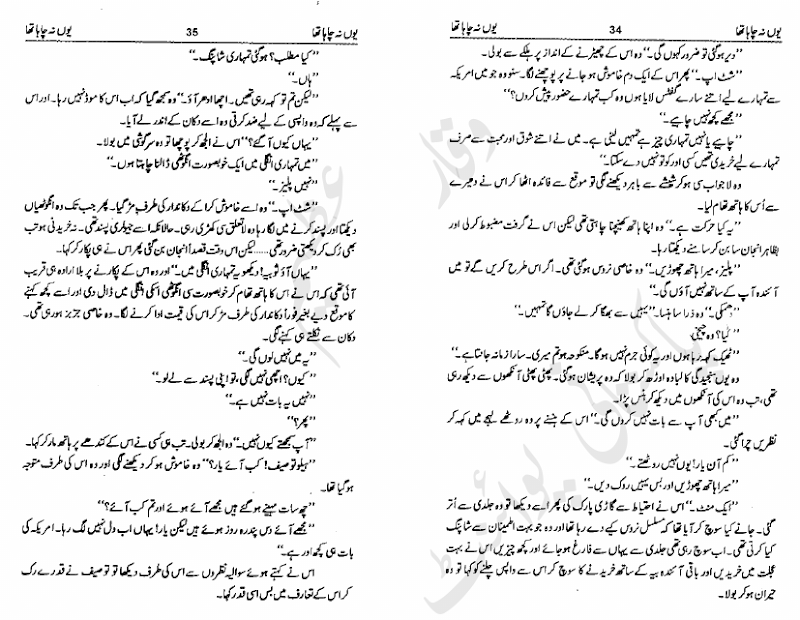 یوں نہ چاہا تھا 34 یوں نہ چاہا تھا
’’دیر ہوگئی تو ضرور کہوں گی۔‘‘ وہ اس کے چھیڑنے کے انداز پر ہلکے سے بولی۔
’’شٹ اپ۔‘‘ پھر اس کے ایک دم خاموش ہو جانے پر پوچھنے لگا۔ سنو وہ جو میں امریکہ
سے تمہارے لیے اتنے سارے گفٹس لایا ہوں وہ کب تمہارے حضور پیش کروں؟‘‘
’’مجھے کچھ نہیں چاہیے۔‘‘
’’چاہیے یا نہیں تمہاری چیز ہے تمہیں لینی ہے۔ میں نے اتنے شوق اور محبت سے صرف
تمہارے لیے خریدی تھیں کسی اور کو تو نہیں دے سکتا۔‘‘
وہ لاجواب سی ہو کر شیشے سے باہر دیکھنے لگی تو موقع سے فائدہ اٹھا کر اس نے دھیرے
سے اُس کا ہاتھ تھام لیا۔
’’یہ کیا حرکت ہے۔‘‘ وہ اپنا ہاتھ کھینچنا چاہتی تھی لیکن اس نے گرفت مضبوط کر لی اور
بظاہر انجان سا بن کر سامنے دیکھتا رہا۔
’’پلیز، میرا ہاتھ چھوڑیں۔‘‘ وہ خاصی نروس ہوگئی تھی۔ اگر اس طرح کریں گے تو میں
آئندہ آپ کے ساتھ نہیں آؤں گی۔‘‘
’’دھمکی۔‘‘ وہ ذرا سا ہنسا۔ ’’یہیں سے بھگا کر لے جاؤں گا تمہیں۔‘‘
’’کیا؟ وہ چیخی۔
’’ٹھیک کہہ رہا ہوں اور یہ کوئی جرم نہیں ہوگا۔ منکوحہ ہو تم میری۔ سارا زمانہ جانتا ہے۔‘‘
وہ یوں سنجیدگی کا لبادہ اوڑھ کر بولا کہ وہ پریشان ہوگئی۔ پھٹی پھٹی آنکھوں سے دیکھ رہی
تھی، تب وہ اس کی آنکھوں میں دیکھ کر ہنس پڑا۔
’’میں کبھی آپ سے بات نہیں کروں گی۔‘‘ اس کے ہنسنے پر وہ روٹھے لہجے میں کہہ کر
نظریں چرا گئی۔
’’کم آن یار! یوں نہیں روٹھتے۔‘‘
’’میرا ہاتھ چھوڑیں اور بس یہیں روک دیں۔‘‘
’’ایک منٹ۔‘‘ اس نے احتیاط سے گاڑی پارک کی پھر اسے دیکھا تو وہ جلدی سے اُتر
گئی۔ جانے کیا سوچ کر آیا تھا کہ مسلسل نروس کیے دے رہا تھا اور وہ جو بہت اطمینان سے شاپنگ
کیا کرتی تھی۔ اب سوچ رہی تھی جلدی سے یہاں سے فارغ ہو جائے اور کچھ چیزیں اس نے بہت
عجلت میں خریدیں اور باقی آئندہ بیہ کے ساتھ خریدنے کا سوچ کر اس سے واپس چلنے کو کہا تو وہ
حیران ہو کر بولا۔
یوں نہ چاہا تھا 35 یوں نہ چاہا تھا
’’کیا مطلب؟ ہوگئی تمہاری شاپنگ۔‘‘
’’ہاں۔‘‘
’’لیکن تم تو کہہ رہی تھیں۔ اچھا ادھر آؤ۔‘‘ وہ سمجھ گیا کہ اب اس کا موڈ نہیں رہا۔ اور اس
سے پہلے کہ وہ واپسی کے لیے ضد کرتی وہ اسے دکان کے اندر لے آیا۔
’’یہاں کیوں آگئے؟‘‘ اس نے الجھ کر پوچھا تو وہ سرگوشی میں بولا۔
’’میں تمہاری انگلی میں ایک خوبصورت انگوٹھی ڈالنا چاہتا ہوں۔‘‘
’’نہیں پلیز۔‘‘
’’شٹ اپ۔‘‘ وہ اسے خاموش کرا کے دکاندار کی طرف مڑ گیا۔ پھر جب تک وہ انگوٹھیاں
دیکھتا اور پسند کرنے میں لگا رہا وہ لاتعلق سی کھڑی رہی۔ حالانکہ اسے جیولری پسند تھی۔ نہ خریدنی ہو تب
بھی رُک کر دیکھتی ضرور تھی...... لیکن اس وقت قصداً انجان بن گئی پھر اس نے ہی پکار کر کہا۔
’’یہاں آؤ ثوبیہ! دیکھو یہ تمہاری انگلی میں۔‘‘ اور وہ اس کے پکارنے پر بلا ارادہ ہی قریب
آئی تھی کہ اس نے اس کا ہاتھ تھام کر خوبصورت سی انگوٹھی انکی انگلی میں ڈال دی اور اسے کچھ کہنے
کا موقع دیے بغیر فوراً دکاندار کی طرف مڑ کر اس کی قیمت ادا کرنے لگا۔ وہ خاصی جزبز ہو رہی تھی۔
دکان سے نکلتے ہی کہنے لگی۔
’’یہ میں نہیں لوں گی۔‘‘
’’کیوں؟ اچھی نہیں لگی، تو اپنی پسند سے لے لو۔‘‘
’’نہیں یہ بات نہیں ہے۔‘‘
’’پھر؟‘‘
’’آپ سمجھتے کیوں نہیں۔‘‘ وہ الجھ کر بولی۔ تب ہی کسی نے اس کے کندھے پر ہاتھ مار کر کہا۔
’’ہیلو توصیف! کب آئے یار؟‘‘ وہ خاموش ہو کر دیکھنے لگی اور وہ اس کی طرف متوجہ
ہو گیا تھا۔
’’چھ سات مہینے ہو گئے ہیں مجھے آئے ہوئے اور تم کب آئے؟‘‘
’’مجھے آئے دس پندرہ روز ہوئے ہیں لیکن یار! یہاں اب دل نہیں لگ رہا۔ امریکہ کی
بات ہی کچھ اور ہے۔‘‘
اس نے کہتے ہوئے سوالیہ نظروں سے اس کی طرف دیکھا تو توصیف نے قدرے رک
کر اس کے تعارف میں بس اسی قدر کہا۔